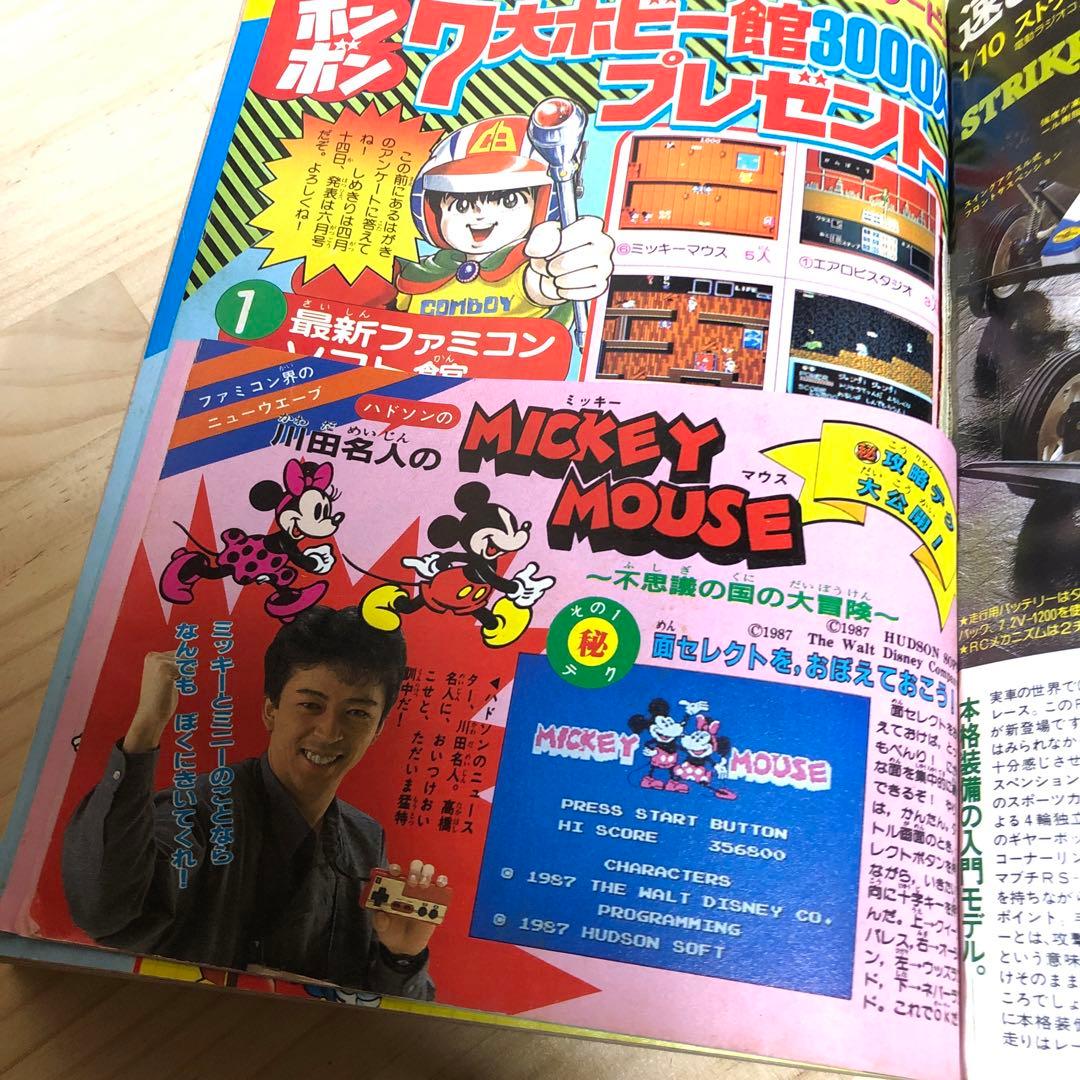 ボンボン
7大ホビー館3000人
プレゼント
この前にあるはがき
のアンケートに答えて
ね! しめきりは四月
十四日、発表は六月号
だぞ。よろしくね!
COMBOY
⑥ミッキーマウス 5人
①エアロビスタジオ
LIFE
1
最新ファミコン
ソフト館
ファミコン界の
ニューウエーブ
川田名人の
ハドソンの
ミッキー
MICKEY
MOUSE
マウス
～不思議の国の大冒険～
㊙攻略テク
大公開!
©1987 HUDSON SOFT
©1987 The Walt Disney Company
その1
秘
テク
面セレクトを,おぼえておこう!
ミッキーとミニーのことなら
なんでも ぼくにきいてくれ!
◀ハドソンのニュース
ター、川田名人。高橋
名人に、おいつけおい
こせと、ただいま猛特
訓中だ!
MICKEY MOUSE
PRESS START BUTTON
HI SCORE 356800
CHARACTERS
© 1987 THE WALT DISNEY CO.
PROGRAMMING
© 1987 HUDSON SOFT
面セレクトを
えておけば、とっ
もべんり! にが
な面を集中的に
できるぞ! や
は、かんたん。タ
トル画面のとき、
レクトボタンを
ながら、いきたい
向に十字キーを
んだ。上→クィー
パレス,右→オー
ン,左→ウッズラ
ド,下→ネバーラ
ド。これでOKだ
速
1/10 スト
電動ラジオコ
STRIKE
エイングアクスル式
フロントサスペンション
★走行用バッテリーは
パック、7.2V-1200を使
★RCメカニズムは2チ
本格装備の入門モデル。
実車の世界で
レース。このR
が新登場です
はみられなか
十分感じさせ
スペンション
のスポーツカ
よる4輪独立
のギヤーボッ
コーナーリン
マブチRS-
を持ちながら
ポイント。ミ
ーとは、攻撃
という意味
けそのまま
ころでしょ
に本格装備
走りはレー